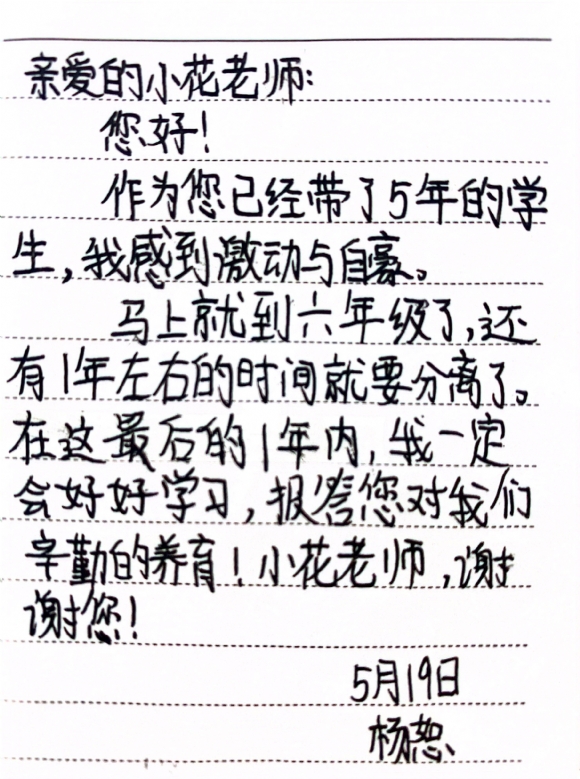 亲爱的小花老师:
您好!
作为您已经带了5年的学
生,我感到激动与自豪。
马上就到六年级了,还
有1年左右的时间就要分离了。
在这最后的1年内,我一定
会好好学习,报答您对我们
辛勤的养育!小花老师,谢
谢您!
5月19日
杨恕